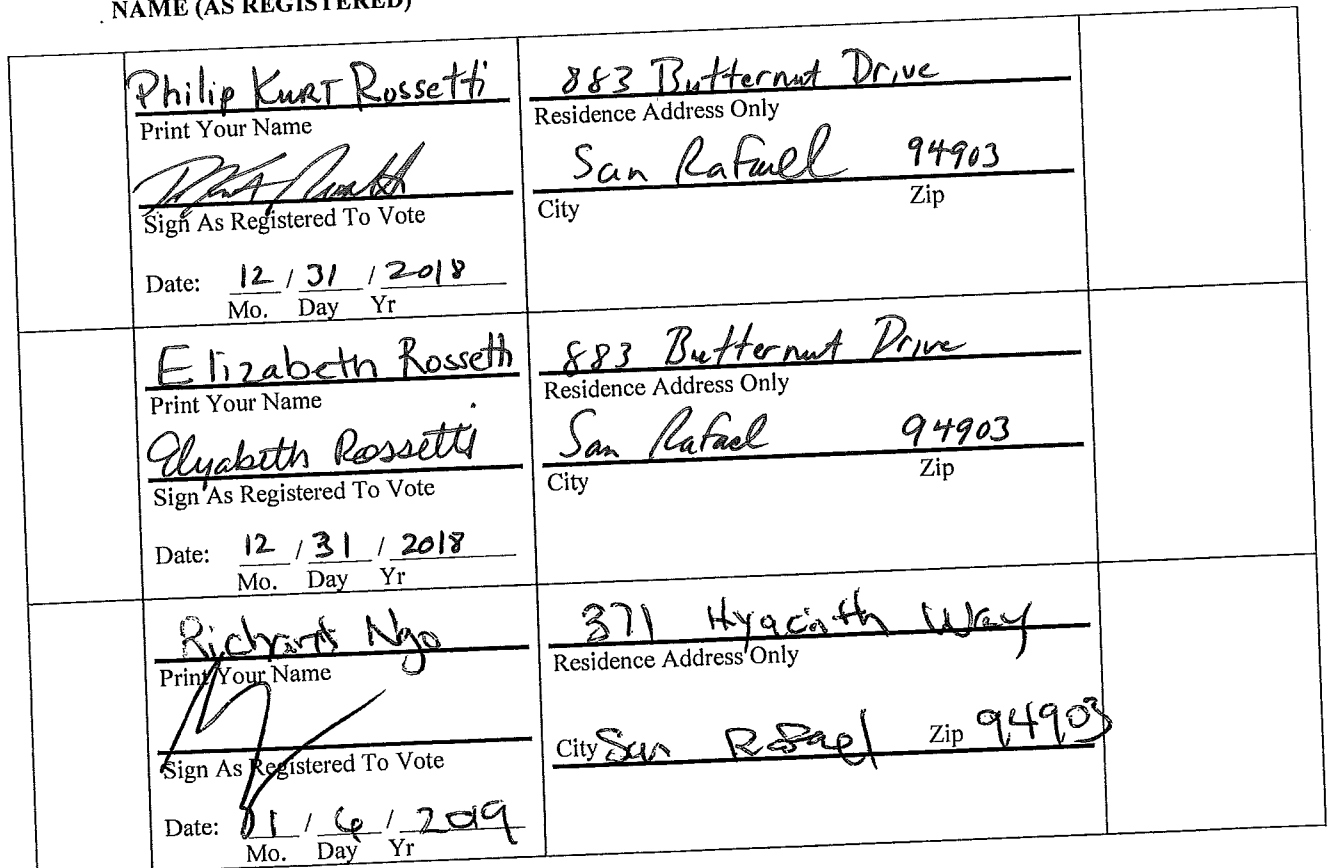 NAME (AS REGISTERED)
Philip Kurt Rossetti
Print Your Name
Sign As Registered To Vote
Date: 12 / 31 / 2018
Mo. Day Yr
883 Butternut Drive
Residence Address Only
San Rafael 94903
City Zip
Elizabeth Rossetti
Print Your Name
Elizabeth Rossetti
Sign As Registered To Vote
Date: 12 / 31 / 2018
Mo. Day Yr
883 Butternut Drive
Residence Address Only
San Rafael 94903
City Zip
Richard Ngo
Print Your Name
Sign As Registered To Vote
Date: 01 / 6 / 2019
Mo. Day Yr
371 Hyacinth Way
Residence Address Only
City San Rafael Zip 94903